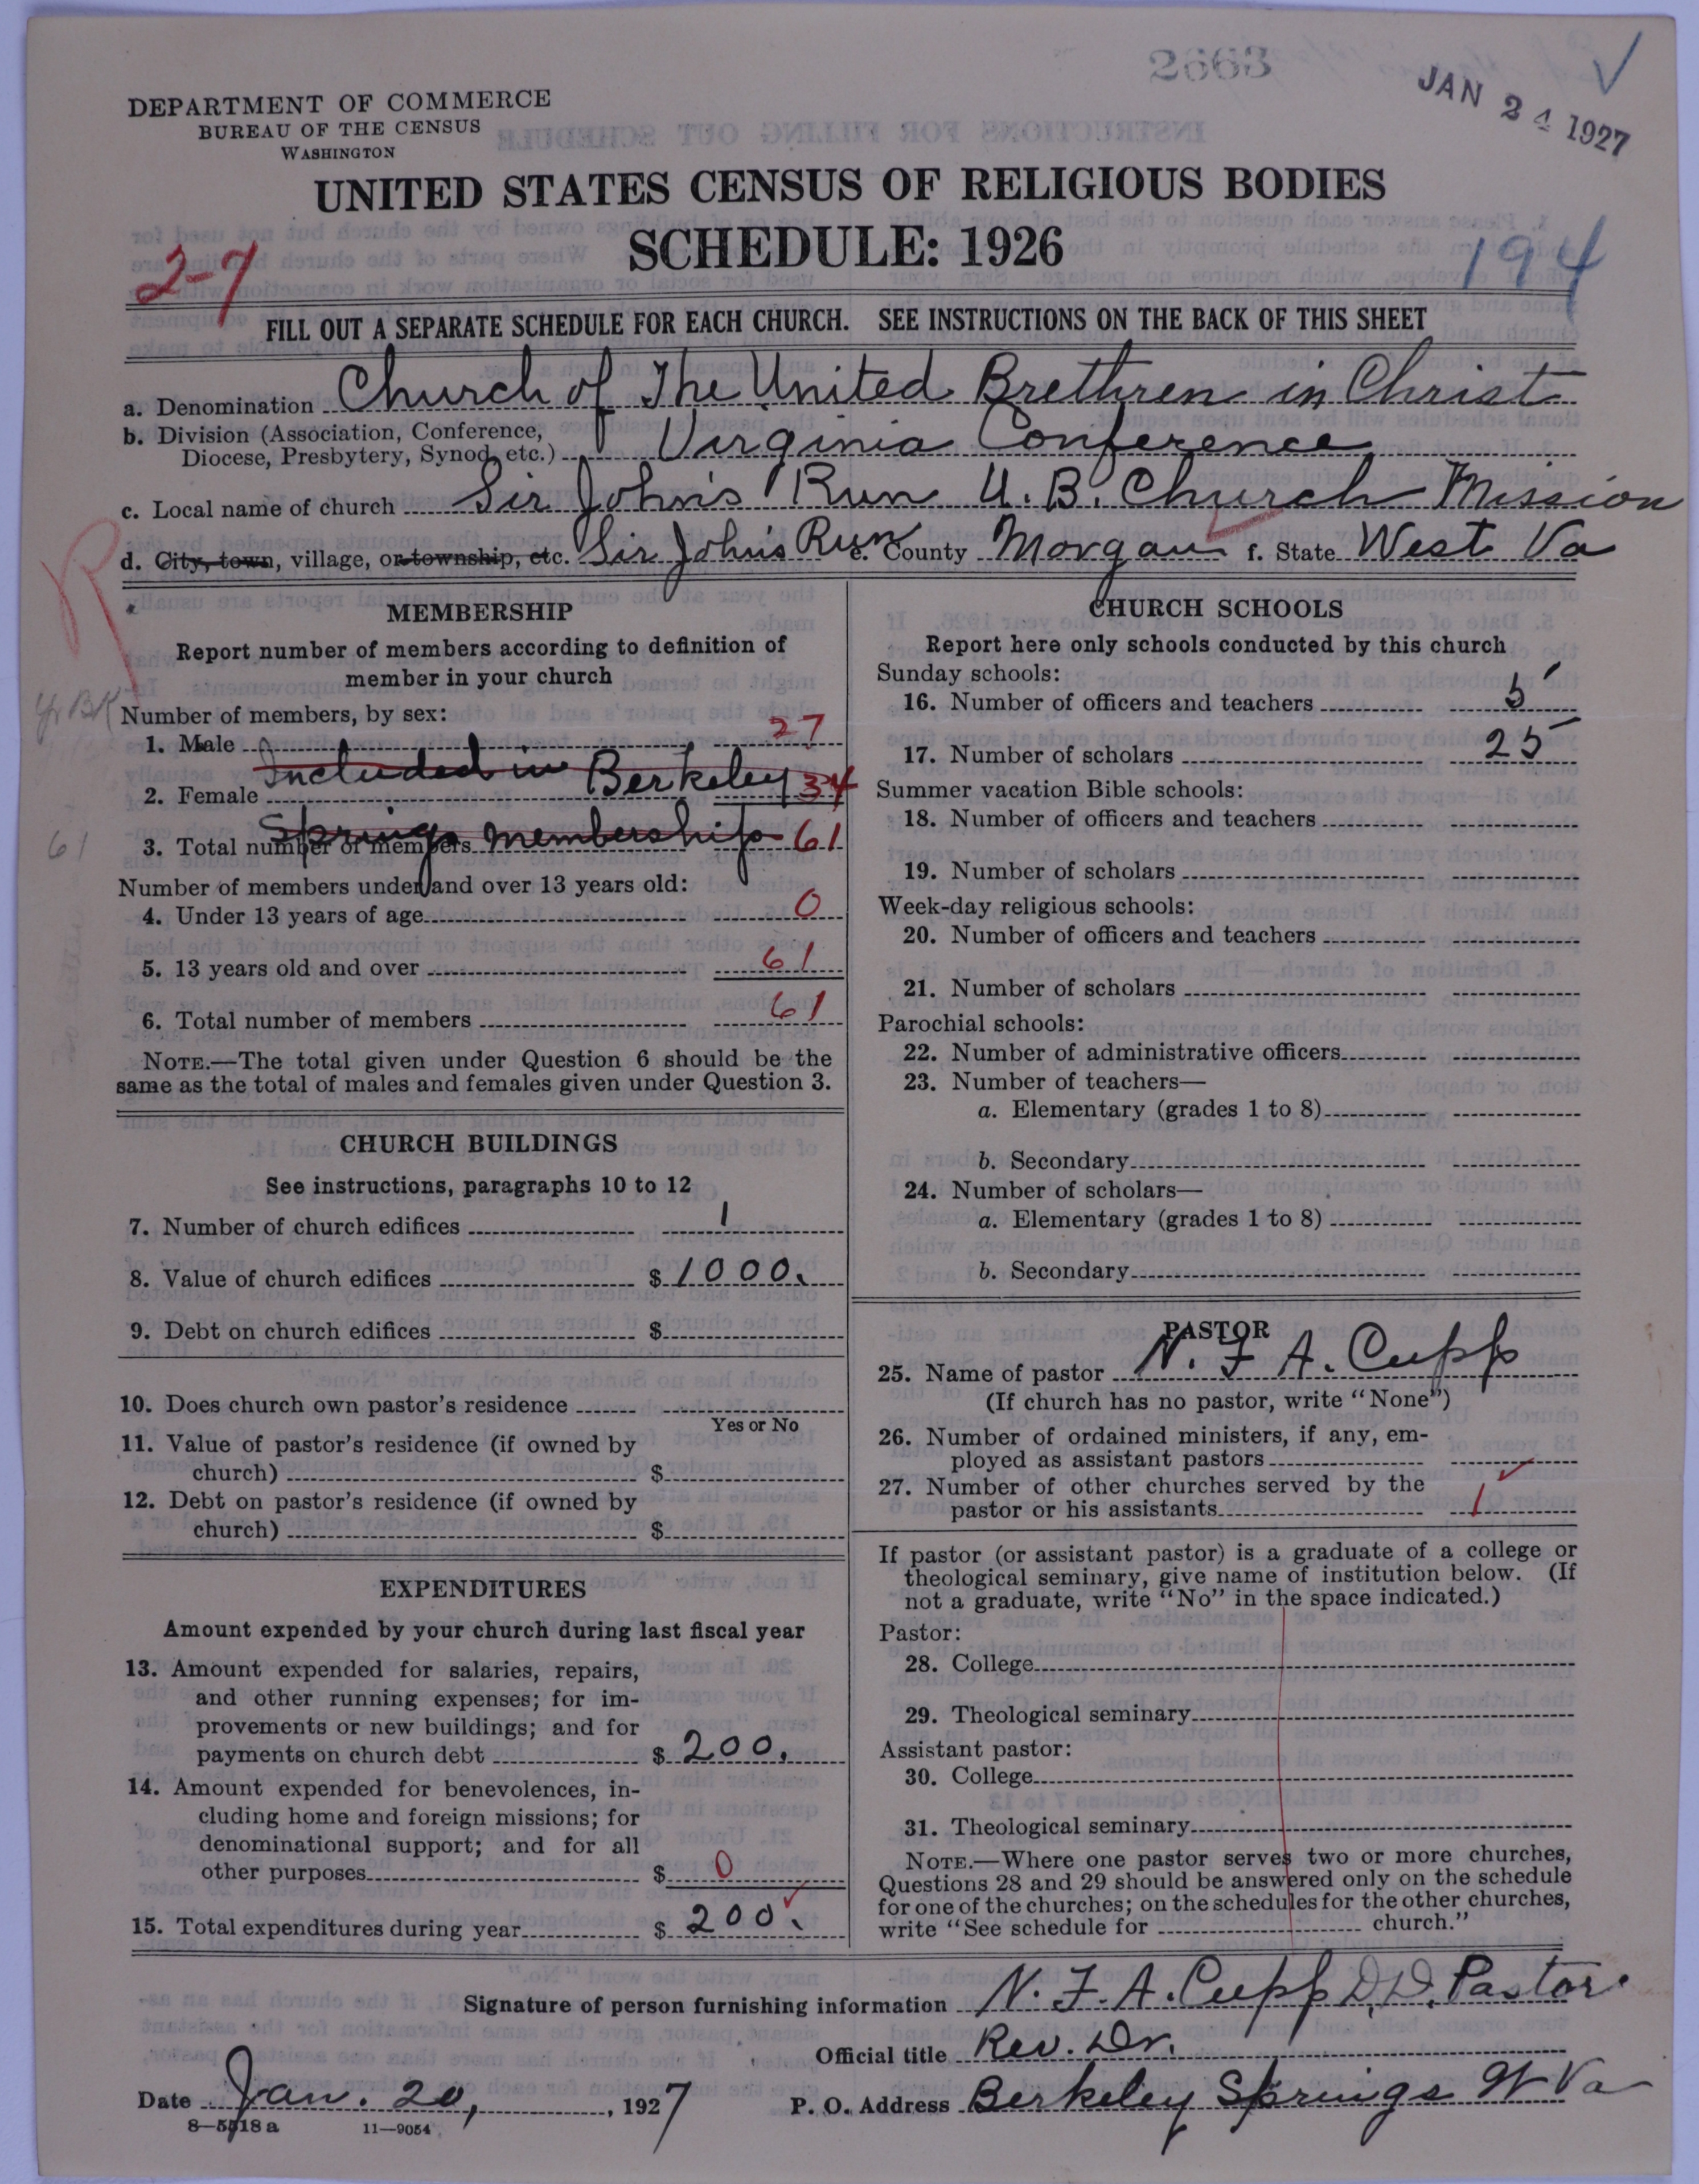 2663
JAN 24 1927
DEPARTMENT OF COMMERCE
BUREAU OF THE CENSUS
WASHINGTON
UNITED STATES CENSUS OF RELIGIOUS BODIES
SCHEDULE: 1926
2-7
194
FILL OUT A SEPARATE SCHEDULE FOR EACH CHURCH. SEE INSTRUCTIONS ON THE BACK OF THIS SHEET
a. Denomination Church of The United Brethren in Christ
b. Division (Association, Conference,
Diocese, Presbytery, Synod, etc.) Virginia Conference
c. Local name of church Sir John's Run U.B. Church Mission
d. City, town, village, or township, etc. Sir John's Run e. County Morgan f. State West Va
R
MEMBERSHIP
Report number of members according to definition of
member in your church
Yr Bk
Number of members, by sex:
1. Male 27
Included in Berkeley
2. Female 34
Springs membership
3. Total number of members 61
61
Number of members under and over 13 years old:
4. Under 13 years of age 0
5. 13 years old and over 61
6. Total number of members 61
NOTE.—The total given under Question 6 should be the
same as the total of males and females given under Question 3.
CHURCH BUILDINGS
See instructions, paragraphs 10 to 12
7. Number of church edifices 1
8. Value of church edifices $1000.
9. Debt on church edifices $
10. Does church own pastor's residence
Yes or No
11. Value of pastor's residence (if owned by
church) $
12. Debt on pastor's residence (if owned by
church) $
EXPENDITURES
Amount expended by your church during last fiscal year
13. Amount expended for salaries, repairs,
and other running expenses; for im-
provements or new buildings; and for
payments on church debt $200.
14. Amount expended for benevolences, in-
cluding home and foreign missions; for
denominational support; and for all
other purposes $ 0
15. Total expenditures during year $ 200.
CHURCH SCHOOLS
Report here only schools conducted by this church
Sunday schools:
16. Number of officers and teachers 5
17. Number of scholars 25
Summer vacation Bible schools:
18. Number of officers and teachers
19. Number of scholars
Week-day religious schools:
20. Number of officers and teachers
21. Number of scholars
Parochial schools:
22. Number of administrative officers
23. Number of teachers—
a. Elementary (grades 1 to 8)
b. Secondary
24. Number of scholars—
a. Elementary (grades 1 to 8)
b. Secondary
PASTOR
25. Name of pastor N. F. A. Cupp
(If church has no pastor, write "None")
26. Number of ordained ministers, if any, em-
ployed as assistant pastors
27. Number of other churches served by the
pastor or his assistants 1
If pastor (or assistant pastor) is a graduate of a college or
theological seminary, give name of institution below. (If
not a graduate, write "No" in the space indicated.)
Pastor:
28. College
29. Theological seminary
Assistant pastor:
30. College
31. Theological seminary
NOTE.—Where one pastor serves two or more churches,
Questions 28 and 29 should be answered only on the schedule
for one of the churches; on the schedules for the other churches,
write "See schedule for church."
Signature of person furnishing information N. F. A. Cupp D.D. Pastor
Official title Rev. Dr.
Date Jan. 20, 1927 P. O. Address Berkeley Springs W Va
8—5518 a 11—9054